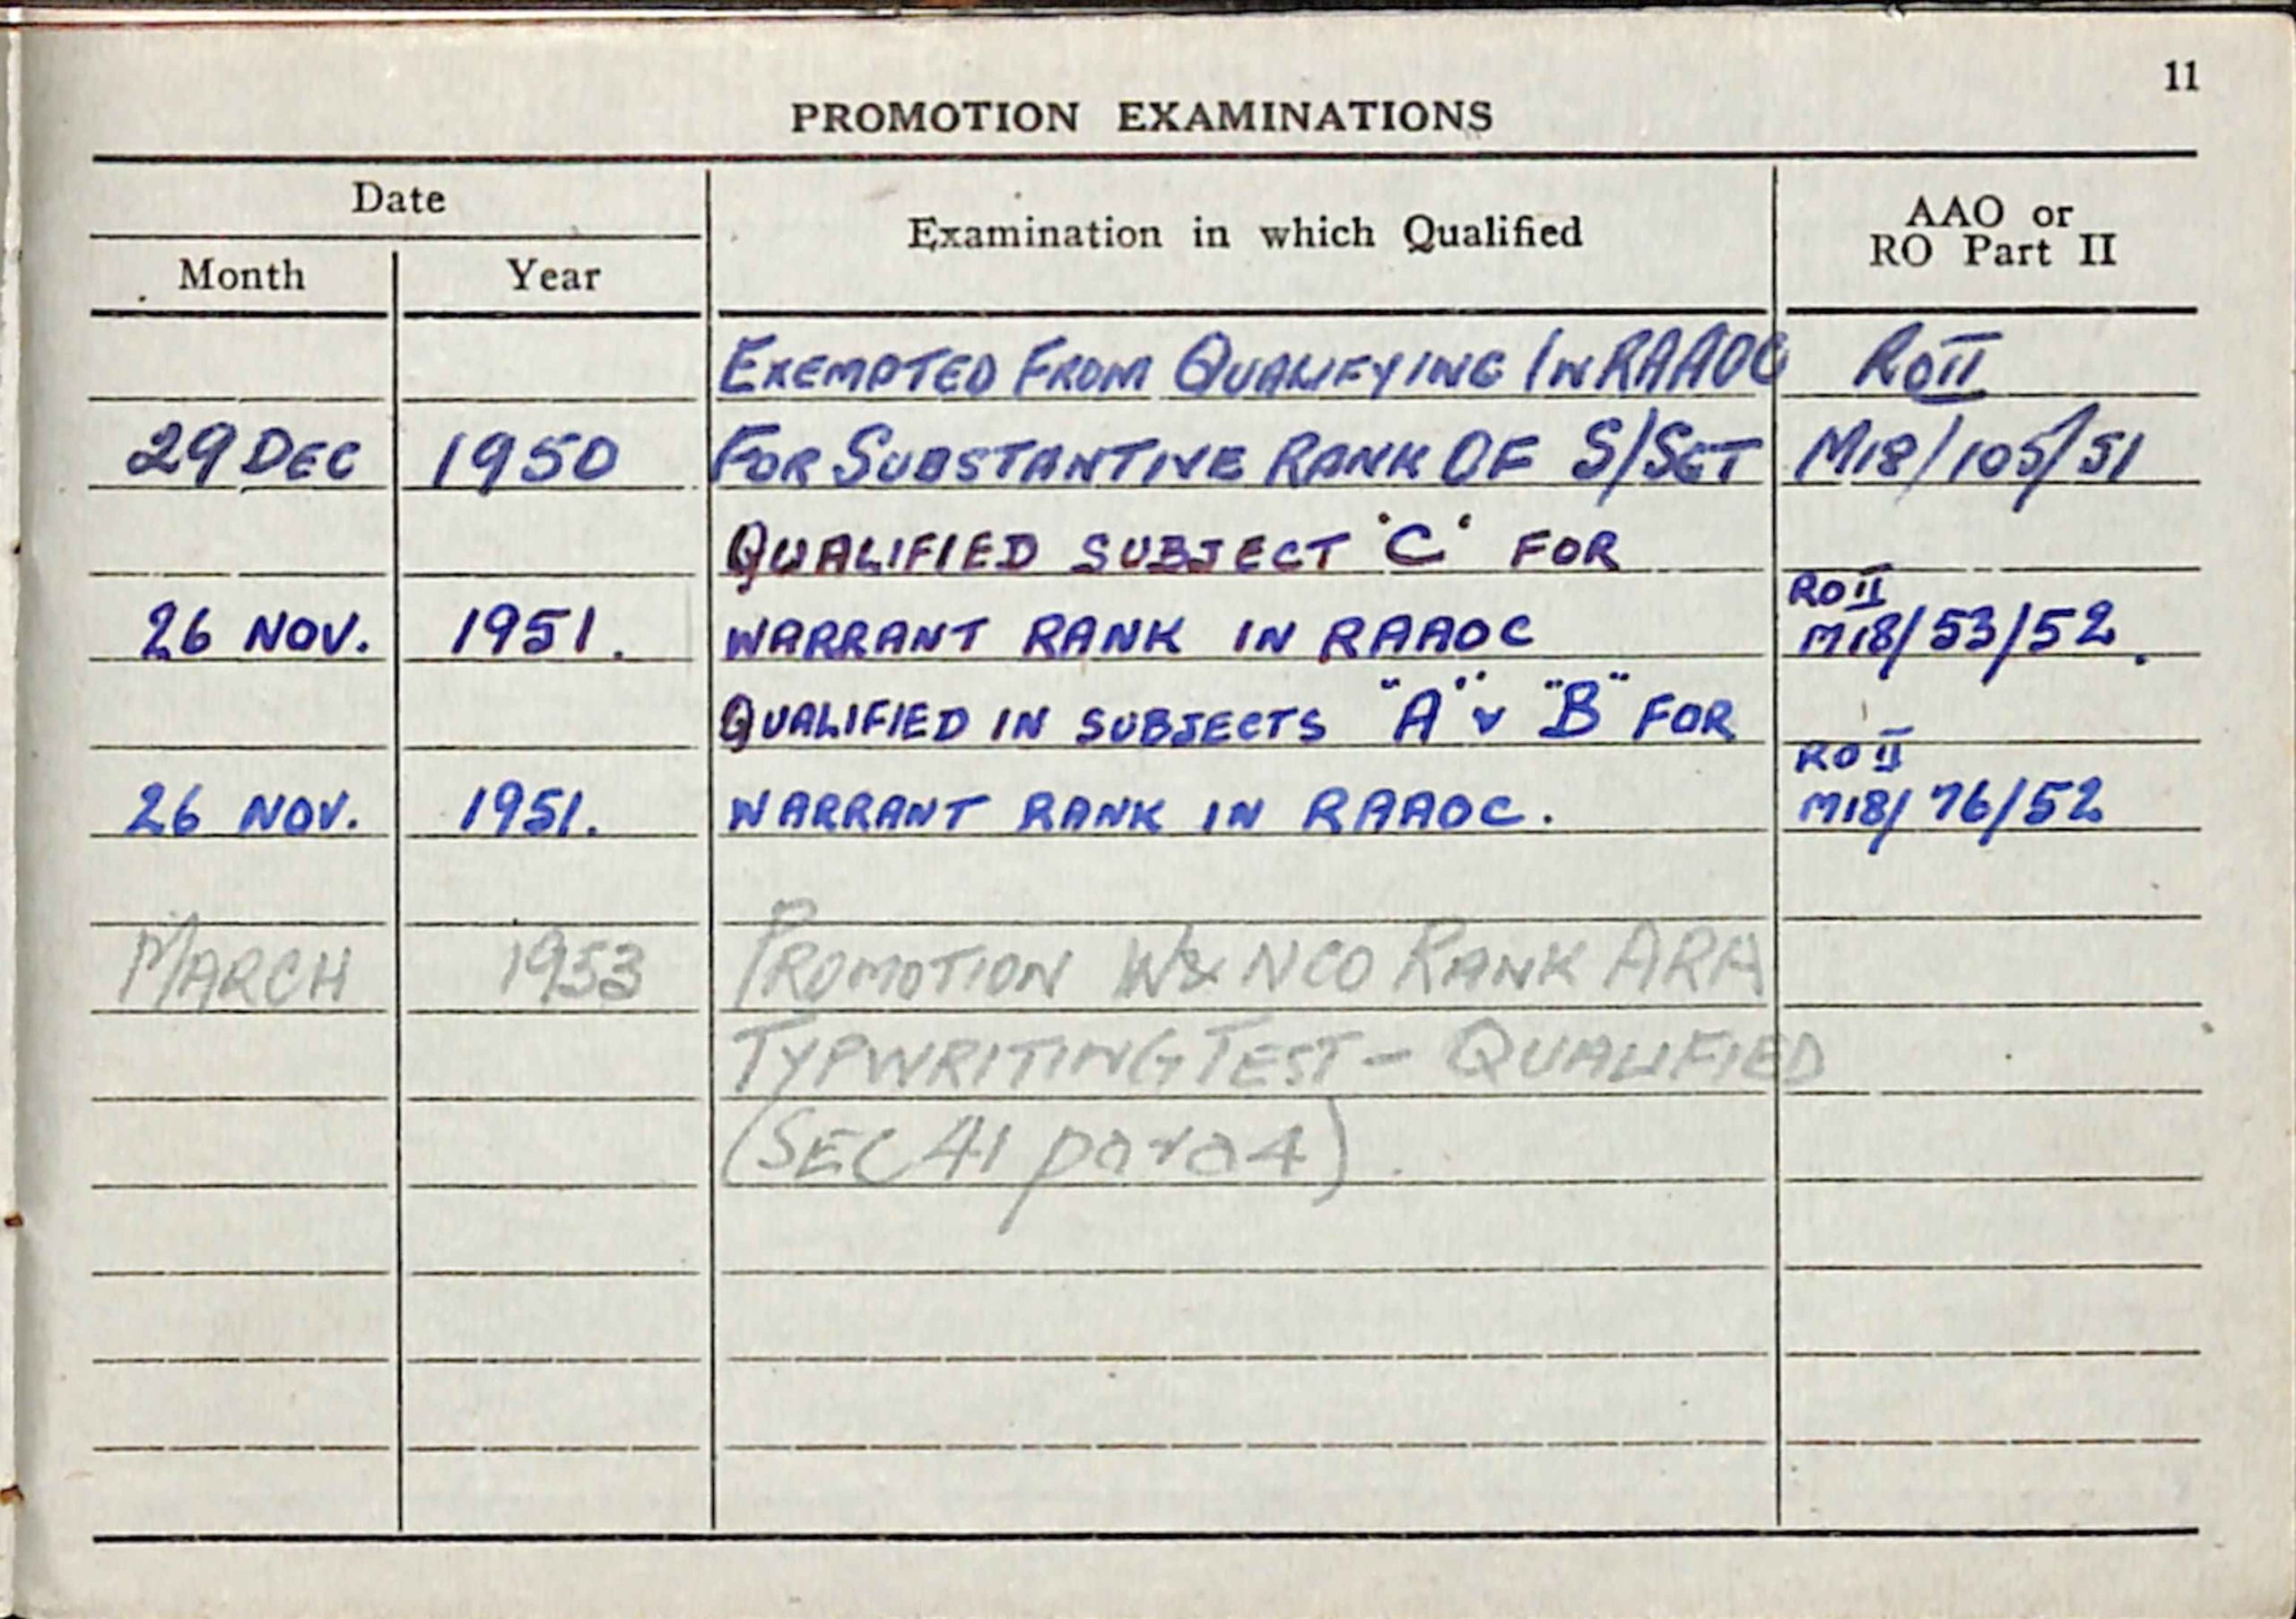 11
PROMOTION EXAMINATIONS
Date
Examination in which Qualified
AAO or
RO Part II
Month Year
EXEMPTED FROM QUALIFYING IN RAAOC ROII
29 DEC 1950 FOR SUBSTANTIVE RANK OF S/SGT M18/105/51
QUALIFIED SUBJECT "C" FOR
RO II
26 NOV. 1951. WARRANT RANK IN RAAOC M18/53/52.
QUALIFIED IN SUBJECTS "A" & "B" FOR
RO II
26 NOV. 1951. WARRANT RANK IN RAAOC. M18/76/52
MARCH 1953 PROMOTION W& NCO RANK ARA
TYPWRITING TEST - QUALIFIED
(SEC 41 para 4).